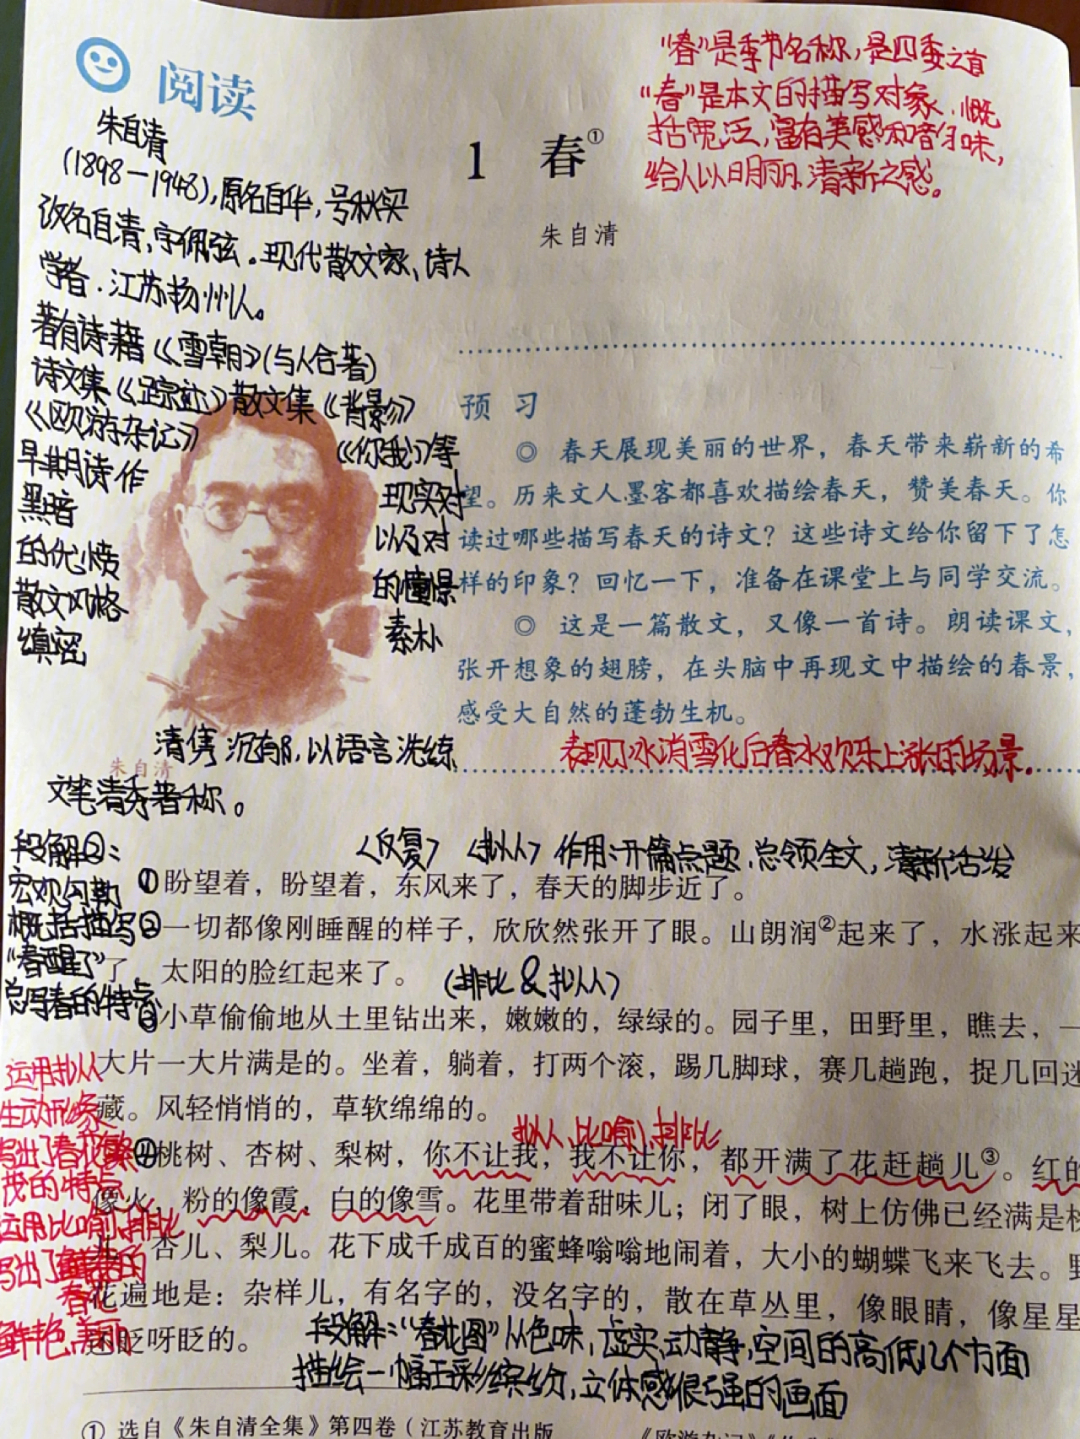 阅读
"春"是季节名称,是四季之首
"春"是本文的描写对象,概
括宽泛,富有美感和音乐味,
给人以明丽、清新之感。
1 春①
朱自清
朱自清
(1898—1948),原名自华,号秋实
改名自清,字佩弦。现代散文家、诗人
学者.江苏扬州人。
著有诗籍《雪朝》(与人合著)
诗文集《踪迹》散文集《背影》
《欧游杂记》《你我》等
早期诗作 现实对
黑暗 以及对
的忧愤 的憧憬
散文风格 素朴
缜密
清隽 沉郁,以语言洗练
朱自清
文笔清秀著称。
预 习
◎ 春天展现美丽的世界，春天带来崭新的希
望。历来文人墨客都喜欢描绘春天，赞美春天。你
读过哪些描写春天的诗文？这些诗文给你留下了怎
样的印象？回忆一下，准备在课堂上与同学交流。
◎ 这是一篇散文，又像一首诗。朗读课文，
张开想象的翅膀，在头脑中再现文中描绘的春景，
感受大自然的蓬勃生机。
表现了冰消雪化后春水欢乐上涨的场景.
<反复> <拟人> 作用:开篇点题,总领全文,清新活泼
段解②:
宏观勾勒
概括描写
"春醒了"
总写春的特点
①盼望着，盼望着，东风来了，春天的脚步近了。
②一切都像刚睡醒的样子，欣欣然张开了眼。山朗润②起来了，水涨起来
了，太阳的脸红起来了。
(排比&拟人)
③小草偷偷地从土里钻出来，嫩嫩的，绿绿的。园子里，田野里，瞧去，一
大片一大片满是的。坐着，躺着，打两个滚，踢几脚球，赛几趟跑，捉几回迷
藏。风轻悄悄的，草软绵绵的。
拟人、比喻、排比
④桃树、杏树、梨树，你不让我，我不让你，都开满了花赶趟儿③。红的
像火，粉的像霞，白的像雪。花里带着甜味儿；闭了眼，树上仿佛已经满是桃
杏儿、梨儿。花下成千成百的蜜蜂嗡嗡地闹着，大小的蝴蝶飞来飞去。野
花遍地是：杂样儿，有名字的，没名字的，散在草丛里，像眼睛，像星星
还眨呀眨的。
运用拟人
生动形象
写出了春花繁
茂的特点
运用比喻、排比
写出了鲜花的
鲜艳,美丽
段解:"春花图"从色味,虚实,动静,空间的高低几个方面
描绘一幅五彩缤纷,立体感很强的画面
① 选自《朱自清全集》第四卷（江苏教育出版